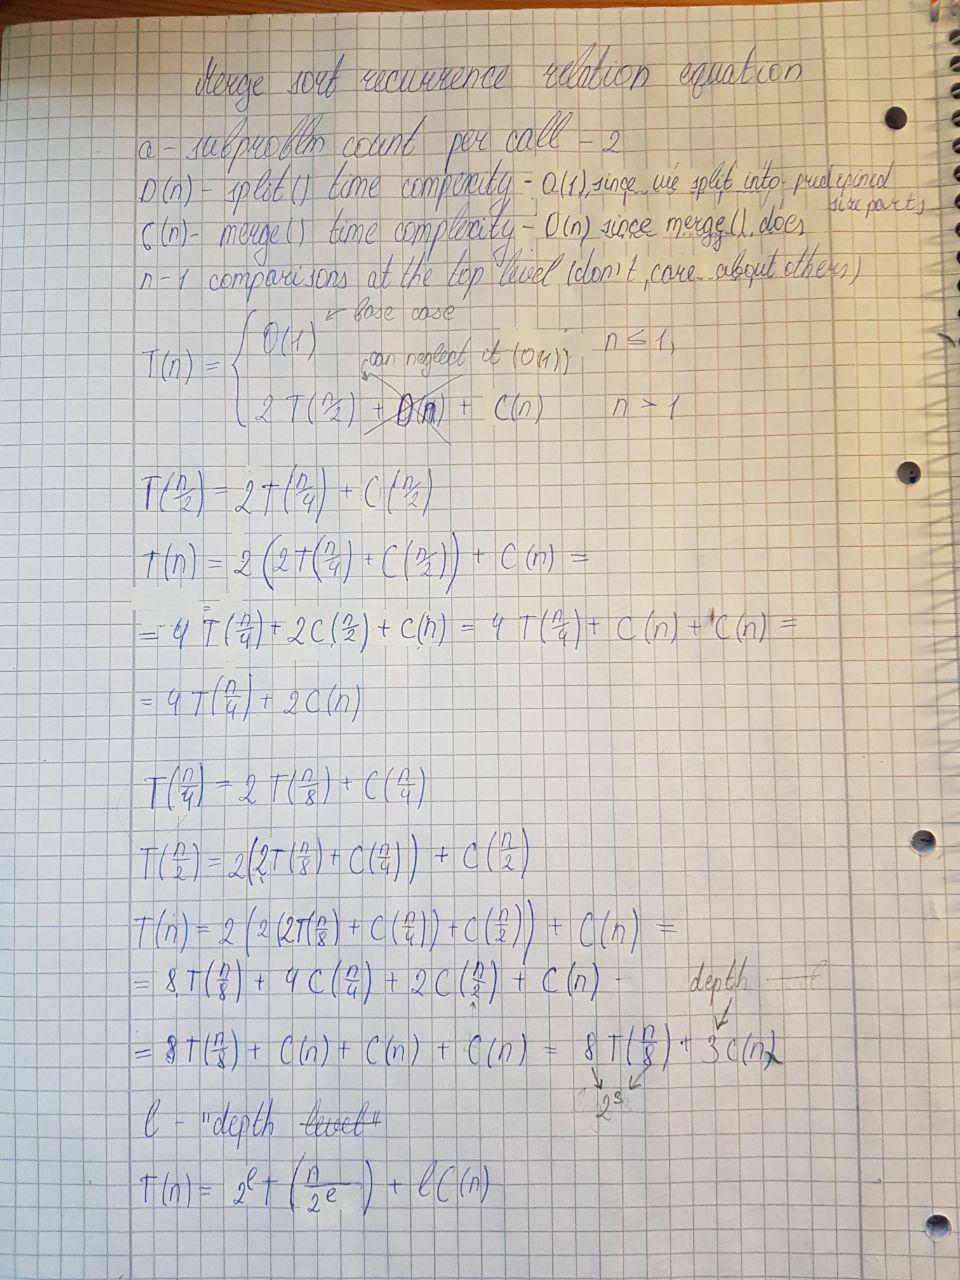 Merge sort recurrence relation equation
a - subproblm count per call - 2
D(n) - split() time compexity - O(1), since we split into predefined
size parts
C(n) - merge() time complexity - O(n) since merge() does
n-1 comparisons at the top level (don't care about others)
← base case
O(1) n ≤ 1,
can neglect it (O(1))
T(n) = {
2T(n/2) + D(n) + C(n) n > 1
T(n/2) = 2T(n/4) + C(n/2)
T(n) = 2(2T(n/4) + C(n/2)) + C(n) =
= 4T(n/4) + 2C(n/2) + C(n) = 4T(n/4) + C(n) + C(n) =
= 4T(n/4) + 2C(n)
T(n/4) = 2T(n/8) + C(n/4)
T(n/2) = 2(2T(n/8) + C(n/4)) + C(n/2)
T(n) = 2(2(2T(n/8) + C(n/4)) + C(n/2)) + C(n) =
= 8T(n/8) + 4C(n/4) + 2C(n/2) + C(n)
depth
= 8T(n/8) + C(n) + C(n) + C(n) = 8T(n/8) + 3C(n)
2³
l - "depth level"
T(n) = 2^l T(n/2^l) + lC(n)